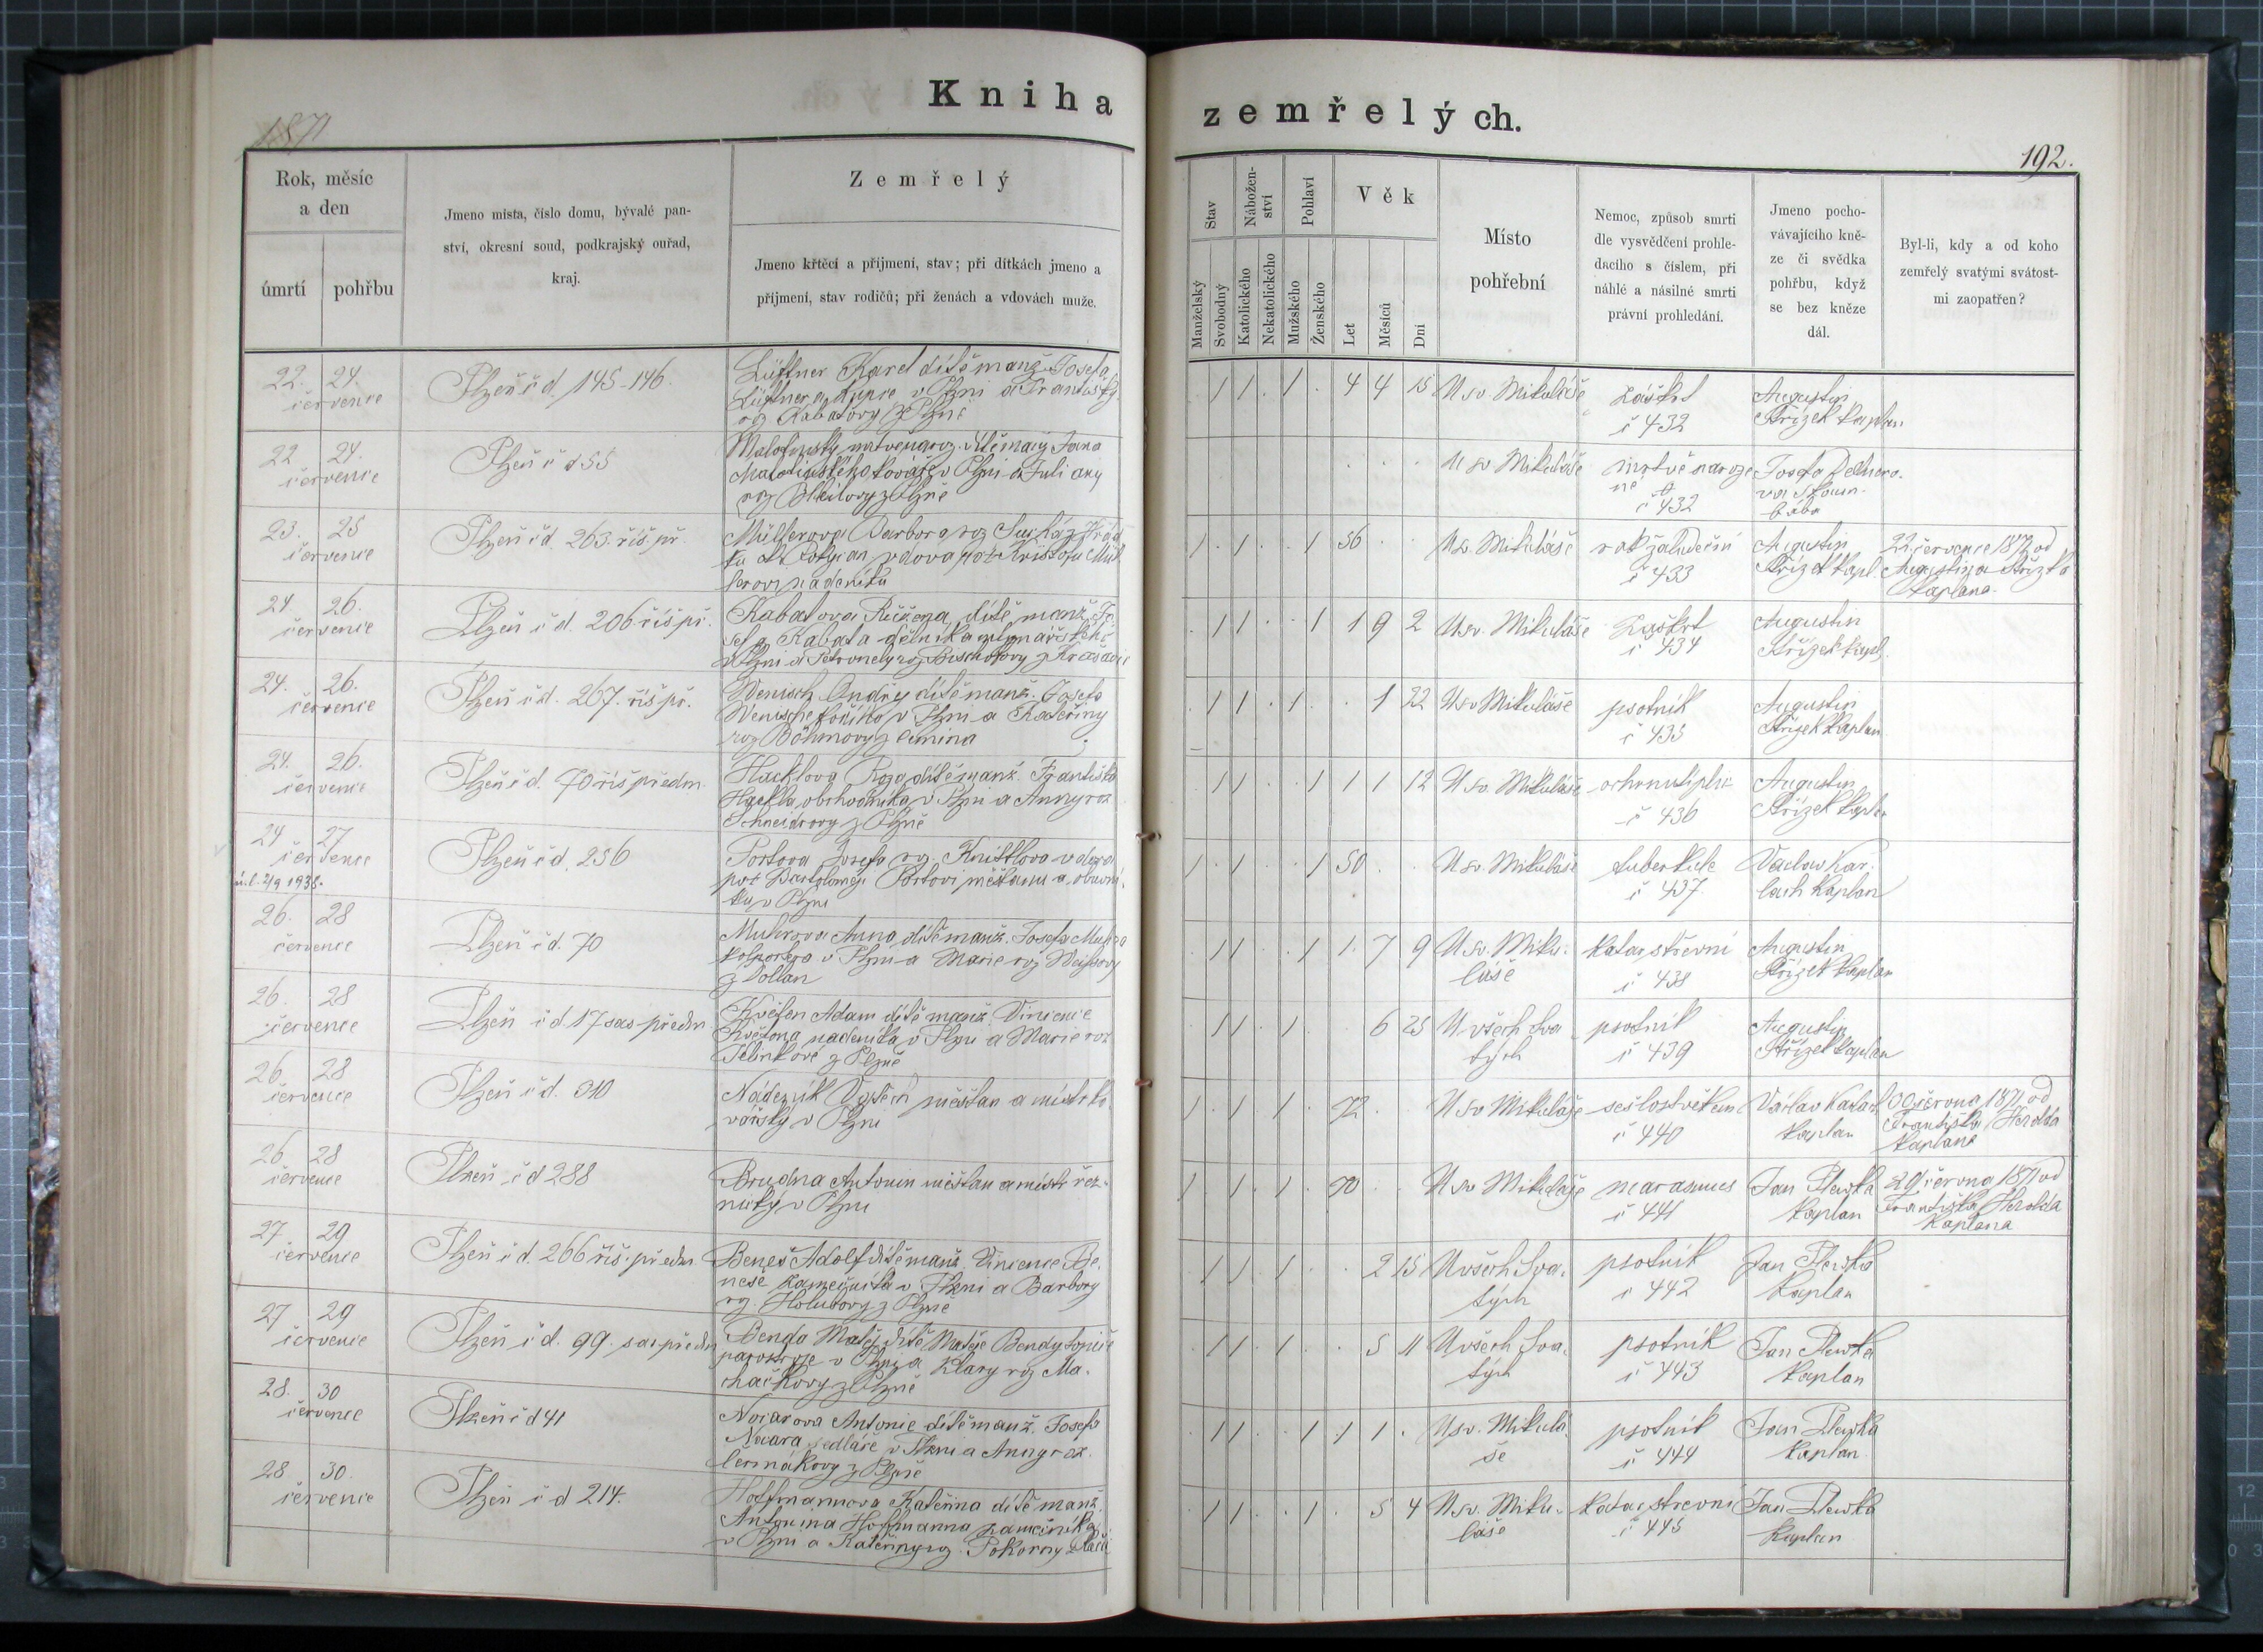 Kniha
zemřelých.
1871
192.
Rok, měsíc
a den
úmrtí
pohřbu
Jmeno místa, číslo domu, bývalé pan-
ství, okresní soud, podkrajský ouřad,
kraj.
Zemřelý
Jmeno křtěcí a příjmení, stav; při dítkách jmeno a
příjmení, stav rodičů; při ženách a vdovách muže.
Stav
Nábožen-
ství
Pohlaví
Věk
Manželský
Svobodný
Katolického
Nekatolického
Mužského
Ženského
Let
Měsíců
Dní
Místo
pohřební
Nemoc, způsob smrti
dle vysvědčení prohle-
dacího s číslem, při
náhlé a násilné smrti
právní prohledání.
Jmeno pocho-
vávajícího kně-
ze či svědka
pohřbu, když
se bez kněze
dál.
Byl-li, kdy a od koho
zemřelý svatými svátost-
mi zaopatřen?
22. 24.
července
Plzeň č d. 145-146.
Lüftner Karel dítě manž. Josefa
Lüftnera, kupce v Plzni a Františky
roz Kabátovy z Plzně
1 1 1 4 4 15
U sv. Mikuláše
záškrt
č 432
Augustin
Střízek kaplan
22 24.
července
Plzeň č d 55
kováře v Plzni a Juliany
z Plzně
U sv Mikuláše
mrtvě naroze
né
č 432
Josefa
bába
23. 25
července
Plzeň č d. 263. říš. př.
Müllerova Barbora roz
vdova po Krištofu Mül
lerovi nádeníku
1 1 1 56
U sv. Mikuláše
rak žaludeční
č 433
Augustin
Střízek kapl.
22 července 1871 od
Augustina Střízka
kaplana.
24. 26.
července
Plzeň č d. 206. říš př.
Kabatova Růžena, dítě manž. Jo
sefa Kabata dělníka
v Plzni a Petronely roz Bischofovy z
1 1 1 1 9 2
U sv. Mikuláše
Záškrt
č 434
Augustin
Střízek kapl.
24. 26.
července
Plzeň č d. 267. říš př.
Wenisch Ondřej dítě manž. Josefa
Wenische v Plzni a Kateřiny
roz Böhmovy z
1 1 1 1 22
U sv Mikuláše
psotník
č 435
Augustin
Střízek kaplan
24. 26.
července
Plzeň č d. 70 říš předm.
Hacklova Roza dítě manž. Františka
Hackla, obchodníka v Plzni a Anny roz
Schneidrovy z Plzně
1 1 1 1 1 12
U sv. Mikuláše
ochrnutí plic
č 436
Augustin
Střízek kapla
24 27
července
2/9 1938.
Plzeň č d. 256
Portova Josefa roz. vdova
po Bartoloměji Portovi měšťanu a obuvní
ku v Plzni
1 1 1 50
U sv Mikuláše
tuberkule
č 437.
Václav Kar-
lach kaplan
26. 28
července
Plzeň č d. 70
Muhrova Anna dítě manž. Josefa Muhra
kolportera v Plzni a Marie roz
z Dollan
1 1 1 1 7 9
U sv. Miku-
láše
Katar střevní
č 438
Augustin
Střízek kaplan
26. 28
července
Plzeň č d. 17 sas předm.
Květen Adam dítě manž. Vincence
Květona nádeníka v Plzni a Marie roz
z Plzně
1 1 1 6 25
U všech Sva
tých
psotník
č 439
Augustin
Střízek kaplan
26 28
července
Plzeň č d. 310
Nádeník Vojtěch měšťan a mistr ko-
vářský v Plzni
1 1 1 72
U sv Mikuláše
sešlost věkem
č 440
Václav Karlach
kaplan
30 června 1871 od
Františka Herolda
kaplana
26 28
července
Plzeň č d 288
Brudna Antonin měšťan a mistr řez-
nický v Plzni
1 1 1 70
U sv Mikuláše
marasmus
č 441
Jan Plewka
kaplan
29 června 1871 od
Františka Herolda
kaplana
27 29
července
Plzeň č d. 266 říš. předm
Beneš Adolf dítě manž. Vincence Be-
neše kameníka v Plzni a Barbory
roz. Holubovy z Plzně
1 1 1 2 15
U všech Sva-
tých
psotník
č 442
Jan Plewka
kaplan
27 29
července
Plzeň č d. 99. sas předm
Benda Matěj dítě Matěje Bendy topiče
parostroje v Plzni a Klary roz Ma-
chačkovy z Plzně
1 1 1 5 11
U všech Sva-
tých
psotník
č 443
Jan Plewka
kaplan
28. 30
července
Plzeň č d 41
Novarova Antonie dítě manž. Josefa
Novara sedláře v Plzni a Anny roz.
Čermákovy z Plzně
1 1 1 1 1
U sv. Mikulá
še
psotník
č 444
Jan Plewka
kaplan
28. 30.
července
Plzeň č d 214.
Hoffmannova Kateřina dítě manž.
Antonina Hoffmanna kameníka
v Plzni a Kateřiny roz. Pokorny z
1 1 1 5 4
U sv. Miku-
láše
Katar střevní
č 445
Jan Plewka
kaplan